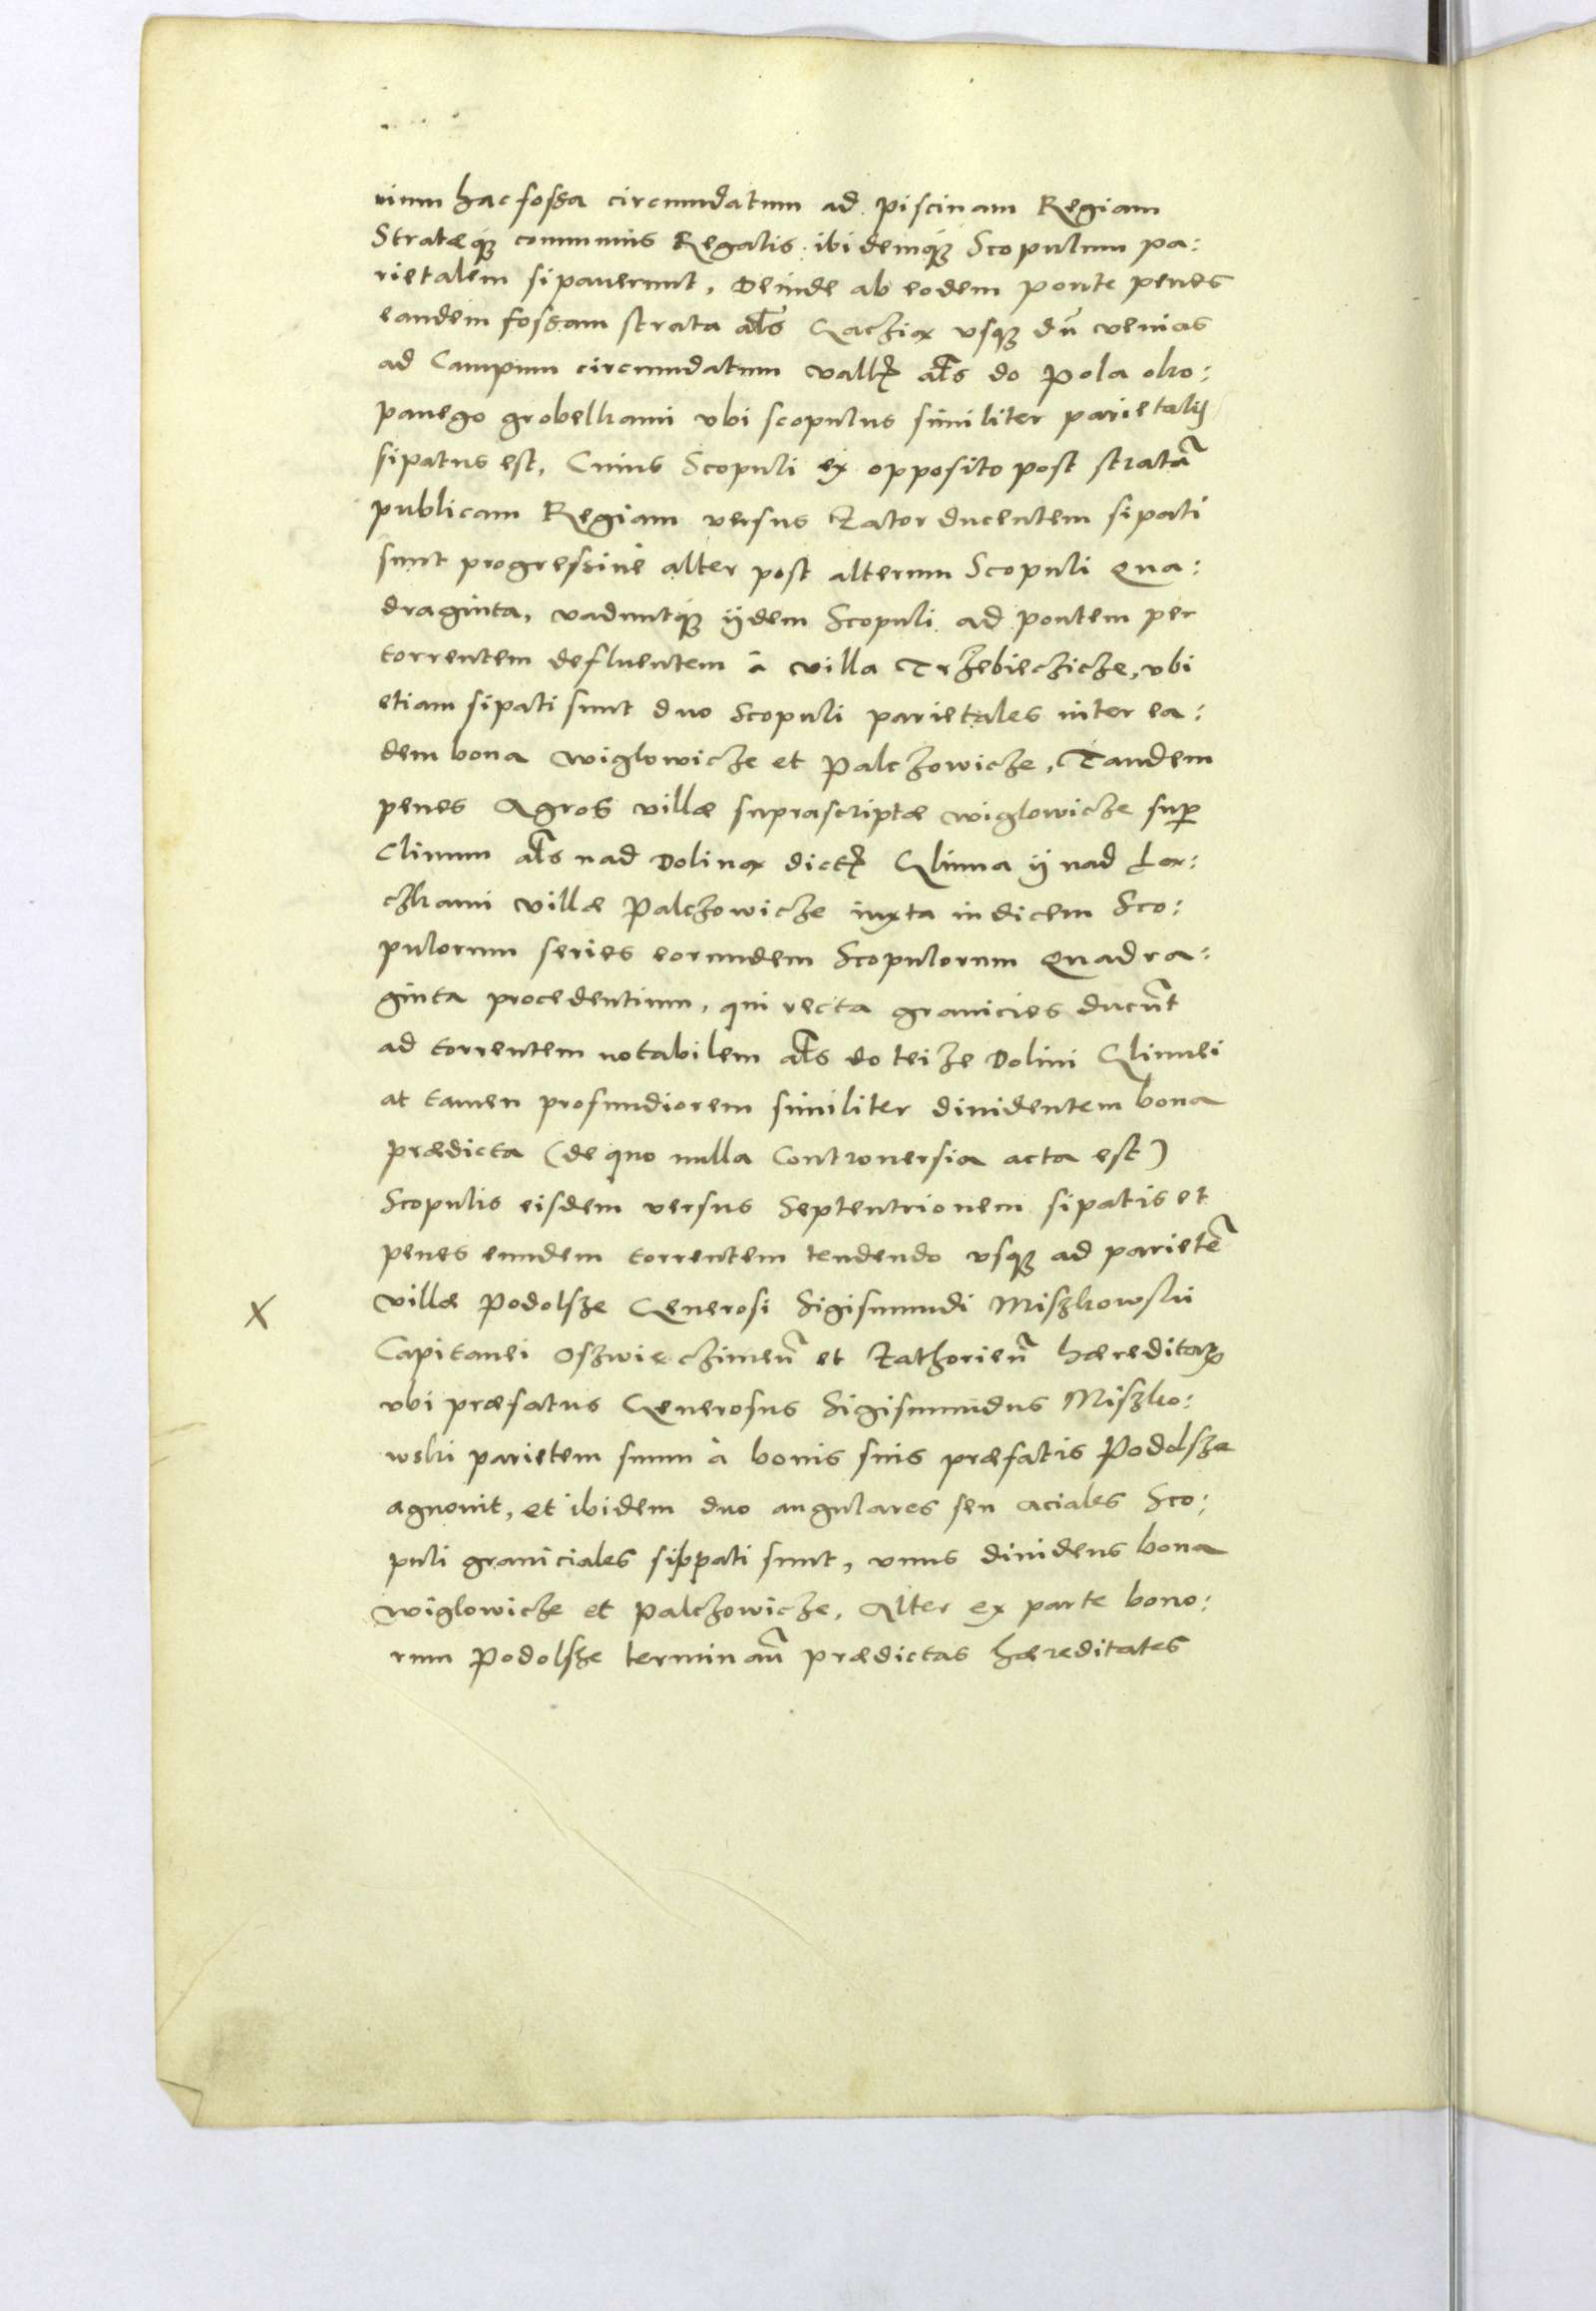 uium hac fossa circumdatum ad piscinam Regiam
Stratæq́ue communis Regalis ibidemq́ue Scopulum pa:
rietalem sipauerunt, Deinde ab eodem ponte penes
eandem fossam strata al̃s Gaczią vsq́ue dũ venias
ad Campum circumdatum vallꝭ al̃s do Pola oko:
panego grobelkami vbi scopulus similiter parietalis
sipatus est, Cuius Scopuli ex opposito post stratã
publicam Regiam versus Zator ducentem sipati
sunt progressiuè alter post alterum Scopuli Qua:
draginta, vaduntq́ue ijdem Scopuli ad pontem per
torrentem defluentem à villa Trzebieczicze, vbi
etiam sipati sunt duo Scopuli parietales inter ea:
dem bona Wiglowicze et Palczowicze, Tandem
penes Agros villæ suprascriptæ Wiglowicze sup
Cliuum al̃s nad Doliną dictꝭ Glinna ij nad Łą:
czkami villæ Palczowicze iuxta indicem Sco:
pulorum series eorundem Scopulorum Quadra:
ginta procedentium, qui recta granicies ducũt
ad torrentem notabilem al̃s do teize Dolini Glinnei
at tamen profundiorem similiter diuidentem bona
prædicta (de quo nulla Controuersia acta est)
Scopulis eisdem versus Septentrionem sipatis et
penes eundem torrentem tendendo vsq́ue ad parietẽ
X villæ Podolsze Generosi Sigismundi Miszkowski
Capitanei Oszwieczimeñ et Zathorieñ hæreditar̃
vbi præfatus Generosus Sigismundus Miszko:
wski parietem suum à bonis suis præfatis Podolsze
agnouit, et ibidem duo angulares seu aciales Sco:
puli graniciales sippati sunt, vnus diuidens bona
Wiglowicze et Palczowicze, Alter ex parte bono:
rum Podolsze terminañ prædictas hæreditates